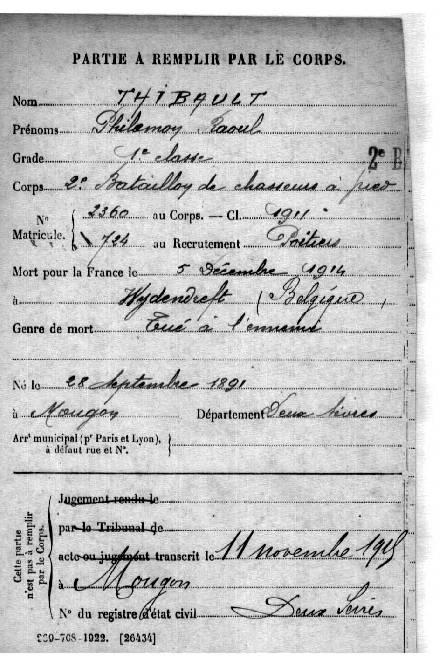 PARTIE À REMPLIR PAR LE CORPS.
Nom THIBAULT
Prénoms Philemon Raoul
Grade 1e classe
2e B
Corps 2e Bataillon de chasseurs à pied
Nº Matricule. 2360 au Corps. — Cl. 1911
724 au Recrutement Poitiers
Mort pour la France le 5 Décembre 1914
à Wydendreft (Belgique)
Genre de mort Tué à l'ennemi
Né le 28 septembre 1891
à Mougon Département Deux Sèvres
Arrt municipal (pr Paris et Lyon),
à défaut rue et Nº.
Cette partie
n'est pas à remplir
par le Corps.
Jugement rendu le
par le Tribunal de
acte ou jugement transcrit le 11 novembre 1915
à Mougon
Nº du registre d'état civil Deux Sèvres
260-708-1922. [26434]